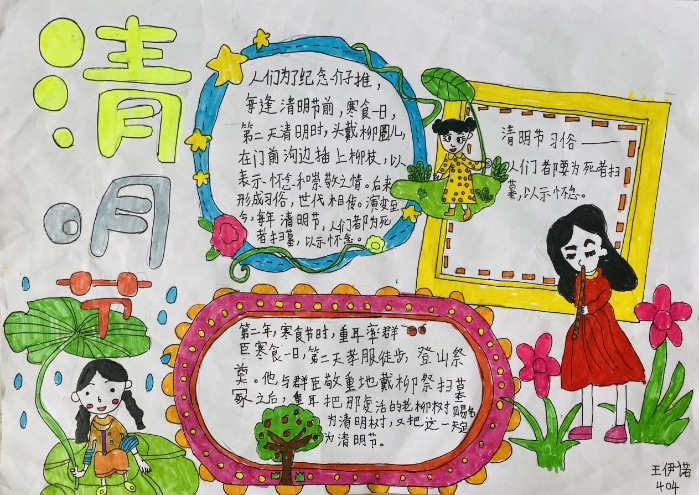 清明节
人们为了纪念介子推，
每逢清明节前，寒食一日，
第二天清明时，头戴柳圈儿，
在门前沟边插上柳枝，以
表示怀念和崇敬之情。后来
形成习俗，世代相传。演变至
今，每年清明节，人们都为死
者扫墓，以示怀念。
清明节习俗——
人们都要为死者扫
墓，以示怀念。
第二年，寒食节时，重耳率群
臣寒食一日，第二天孝服徒步，登山祭
奠。他与群臣敬重地戴柳祭扫墓
冢之后，重耳把那复活的老柳树赐名
为清明树，又把这一天定
为清明节。
王伊诺
404